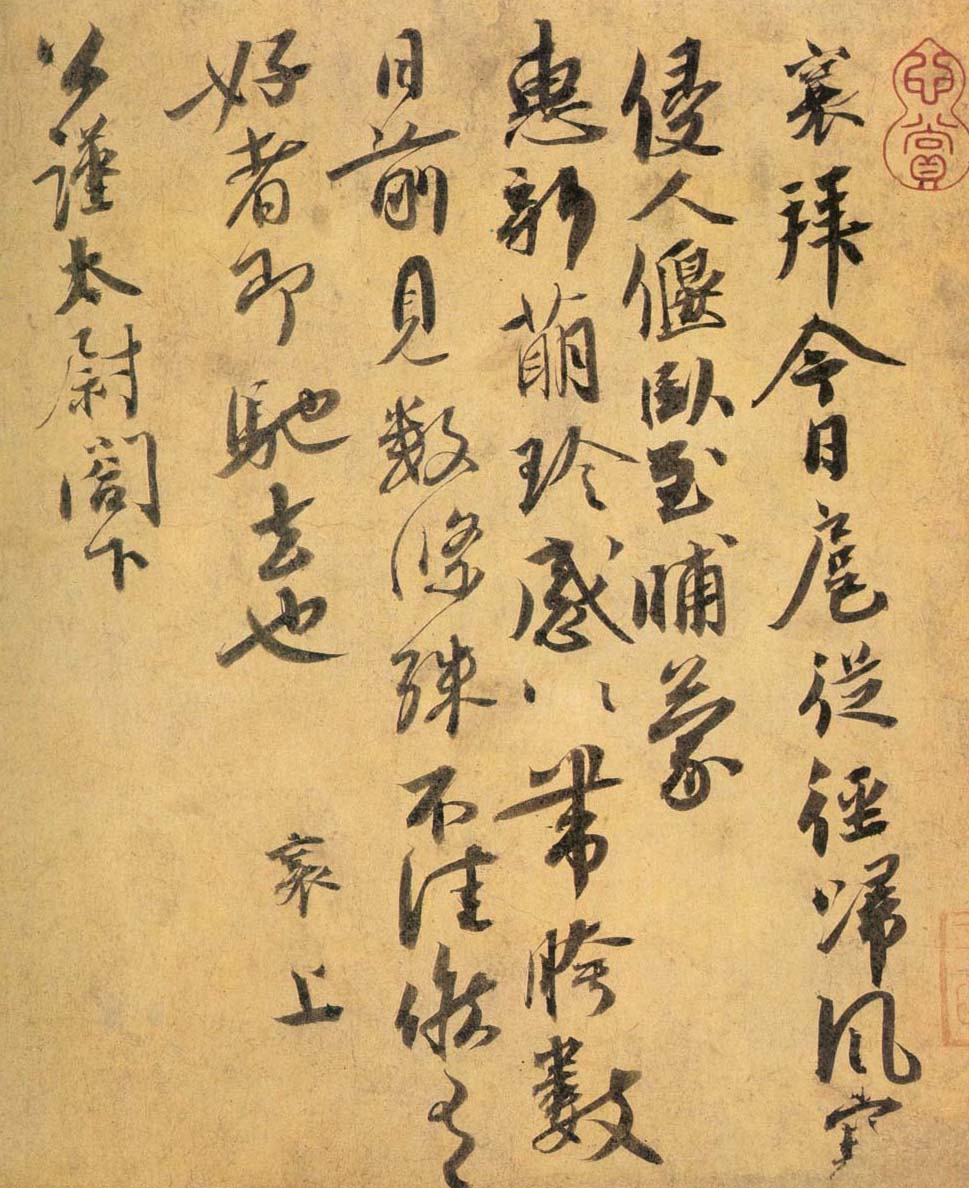 襄拜今日扈從徑歸風寒
侵人偃臥至晡蒙
惠新萌珍感〻帶胯數
日前見数條殊不佳候有
好者即馳去也 襄上
公謹太尉閤下